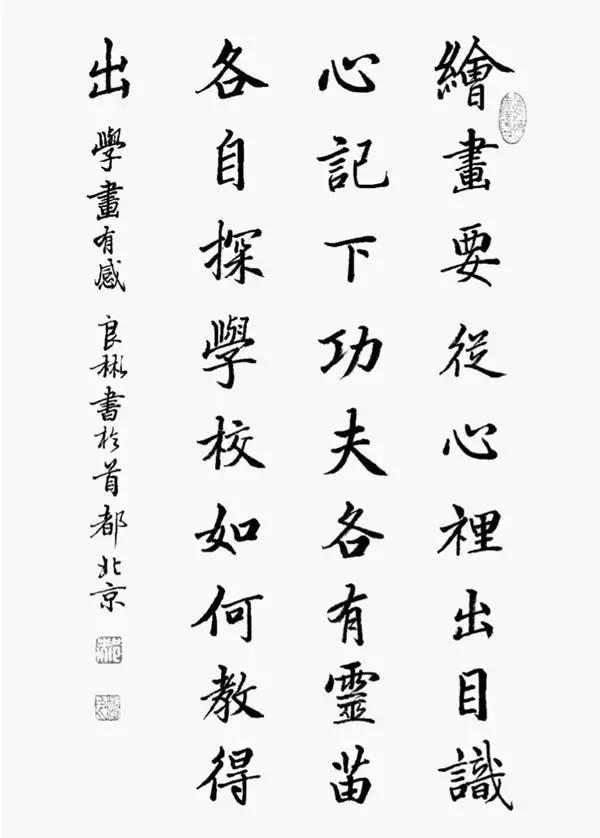 繪畫要從心裡出目識
心記下功夫各有靈苗
各自探學校如何教得
出 學畫有感 良彬書於首都北京